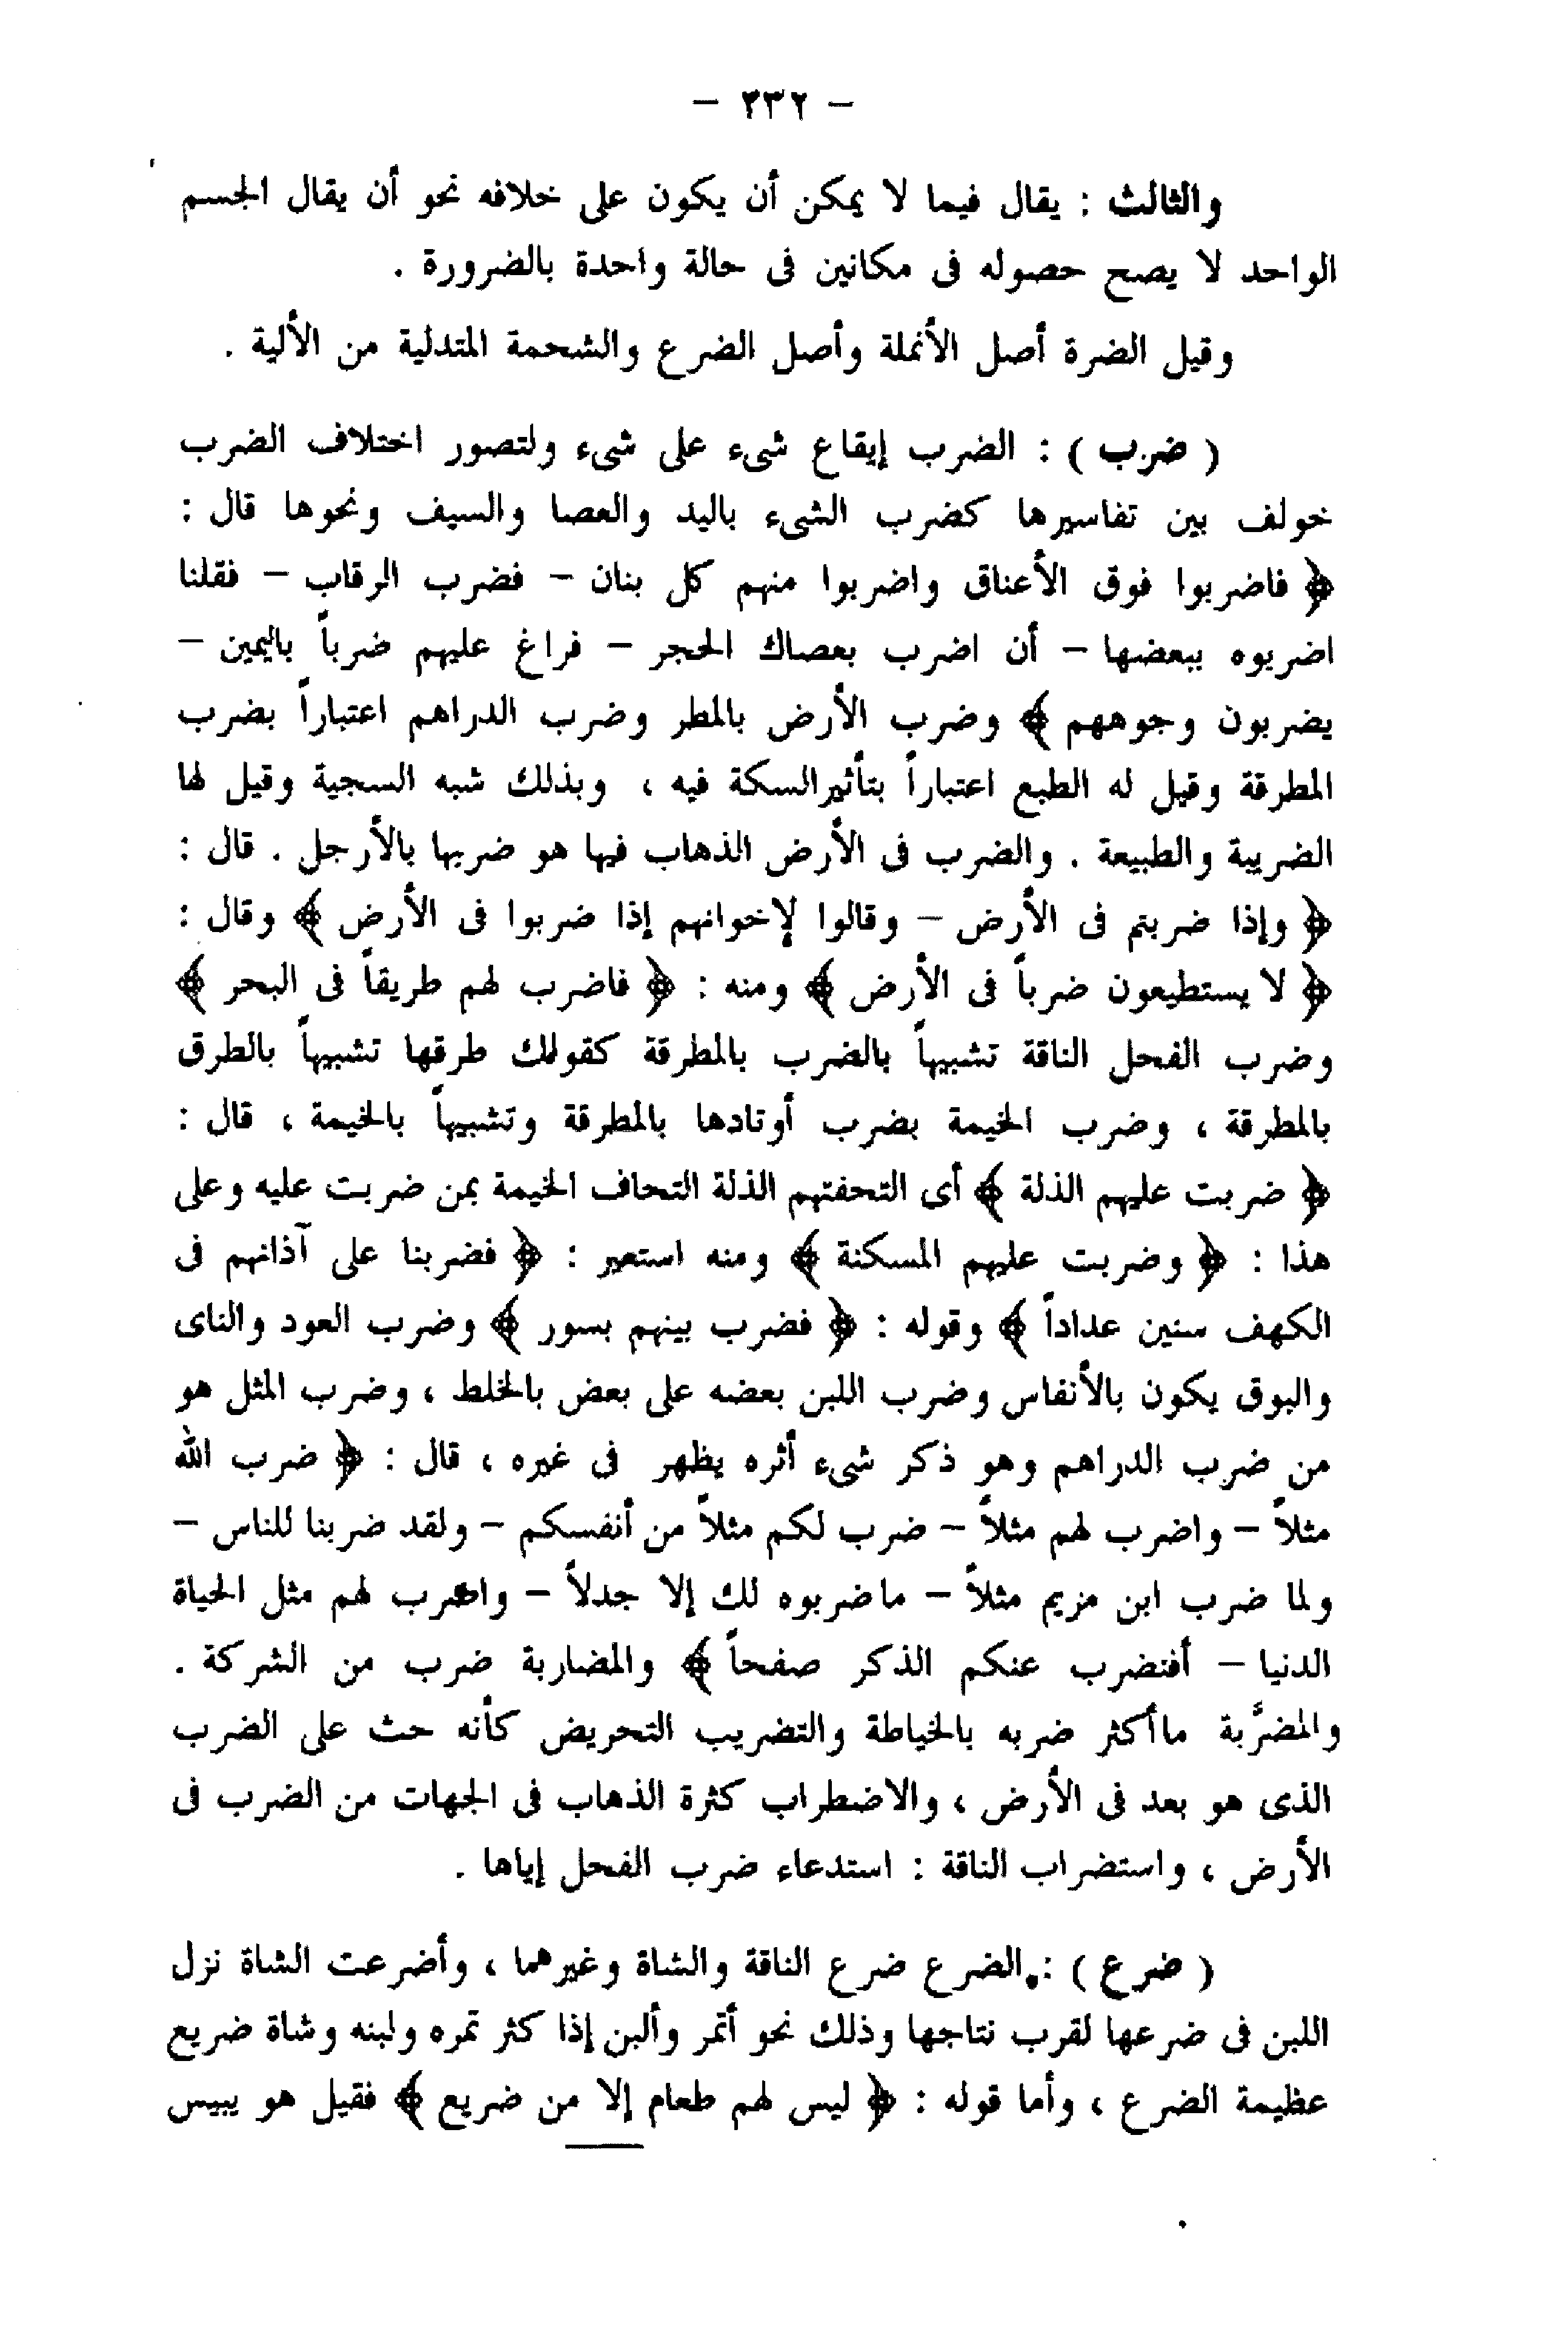 – ٢٣٢ –
والثالث : يقال فيما لا يمكن أن يكون على خلافه نحو أن يقال الجسم
الواحد لا يصح حصوله فى مكانين فى حالة واحدة بالضرورة .
وقيل الضرة أصل الأنملة وأصل الضرع والشحمة المتدلية من الألية .
( ضرب ) : الضرب إيقاع شىء على شىء ولتصور اختلاف الضرب
خولف بين تفاسيرها كضرب الشىء باليد والعصا والسيف ونحوها قال :
﴿ فاضربوا فوق الأعناق واضربوا منهم كل بنان – فضرب الرقاب – فقلنا
اضربوه ببعضها – أن اضرب بعصاك الحجر – فراغ عليهم ضرباً باليمين –
يضربون وجوههم ﴾ وضرب الأرض بالمطر وضرب الدراهم اعتباراً بضرب
المطرقة وقيل له الطبع اعتباراً بتأثيرالسكة فيه ، وبذلك شبه السجية وقيل لها
الضريبة والطبيعة . والضرب فى الأرض الذهاب فيها هو ضربها بالأرجل . قال :
﴿ وإذا ضربتم فى الأرض – وقالوا لإخوانهم إذا ضربوا فى الأرض ﴾ وقال :
﴿ لا يستطيعون ضرباً فى الأرض ﴾ ومنه : ﴿ فاضرب لهم طريقاً فى البحر ﴾
وضرب الفحل الناقة تشبيهاً بالضرب بالمطرقة كقولك طرقها تشبيهاً بالطرق
بالمطرقة ، وضرب الخيمة بضرب أوتادها بالمطرقة وتشبيهاً بالخيمة ، قال :
﴿ ضربت عليهم الذلة ﴾ أى التحفتهم الذلة التحاف الخيمة بمن ضربت عليه وعلى
هذا : ﴿ وضربت عليهم المسكنة ﴾ ومنه استعير : ﴿ فضربنا على آذانهم فى
الكهف سنين عداداً ﴾ وقوله : ﴿ فضرب بينهم بسور ﴾ وضرب العود والناى
والبوق يكون بالأنفاس وضرب اللبن بعضه على بعض بالخلط ، وضرب المثل هو
من ضرب الدراهم وهو ذكر شىء أثره يظهر فى غيره ، قال : ﴿ ضرب الله
مثلاً – واضرب لهم مثلاً – ضرب لكم مثلاً من أنفسكم – ولقد ضربنا للناس –
ولما ضرب ابن مزيم مثلاً – ماضربوه لك إلا جدلاً – واضرب لهم مثل الحياة
الدنيا – أفنضرب عنكم الذكر صفحاً ﴾ والمضاربة ضرب من الشركة .
والمضرَّبة ماأكثر ضربه بالخياطة والتضريب التحريض كأنه حث على الضرب
الذى هو بعد فى الأرض ، والاضطراب كثرة الذهاب فى الجهات من الضرب فى
الأرض ، واستضراب الناقة : استدعاء ضرب الفحل إياها .
( ضرع ) : الضرع ضرع الناقة والشاة وغيرهما ، وأضرعت الشاة نزل
اللبن فى ضرعها لقرب نتاجها وذلك نحو أتمر وألبن إذا كثر تمره ولبنه وشاة ضريع
عظيمة الضرع ، وأما قوله : ﴿ ليس لهم طعام إلا من ضريع ﴾ فقيل هو يبيس